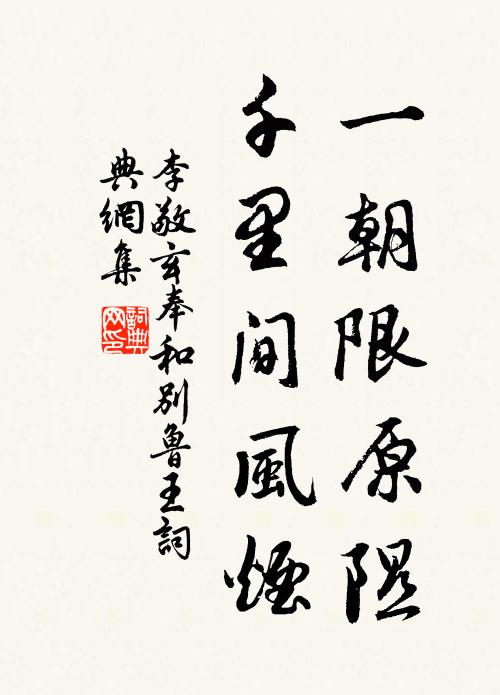 一朝限原隰
千里間風煙
李敬玄奉和別魯王詞
典網集
詞典网印